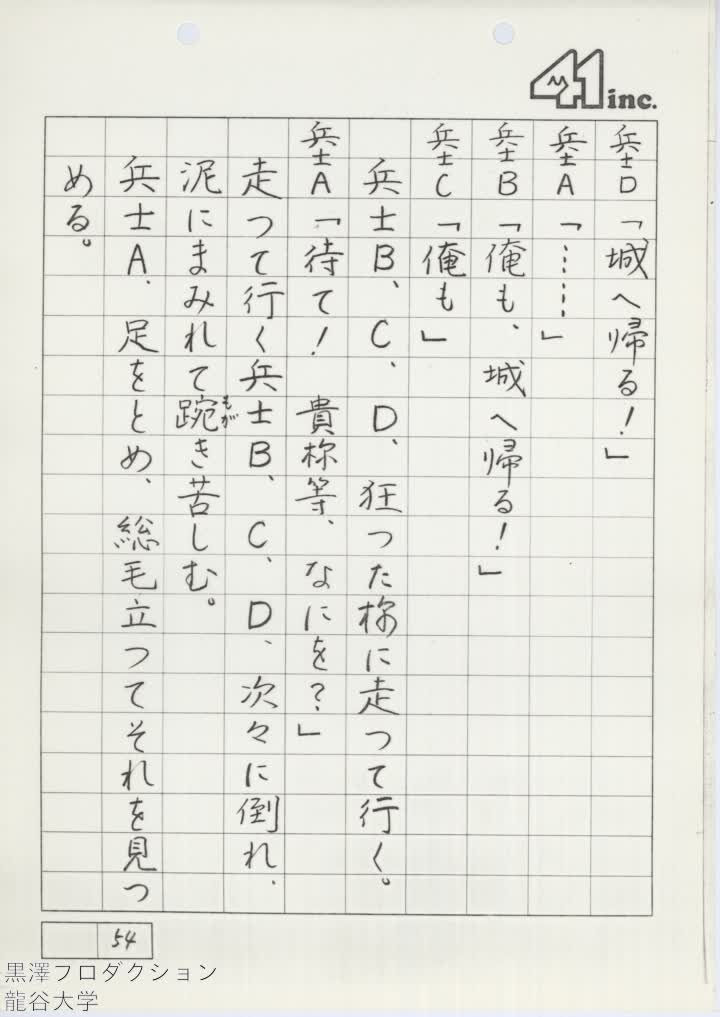 41 inc.
兵士D「城へ帰る！」
兵士A「……」
兵士B「俺も、城へ帰る！」
兵士C「俺も」
兵士B、C、D、狂った様に走って行く。
兵士A「待て！　貴様等、なにを？」
走って行く兵士B、C、D、次々に倒れ、
泥にまみれて踠き苦しむ。
もが
兵士A、足をとめ、総毛立ってそれを見つ
める。
54
黒澤プロダクション
龍谷大学